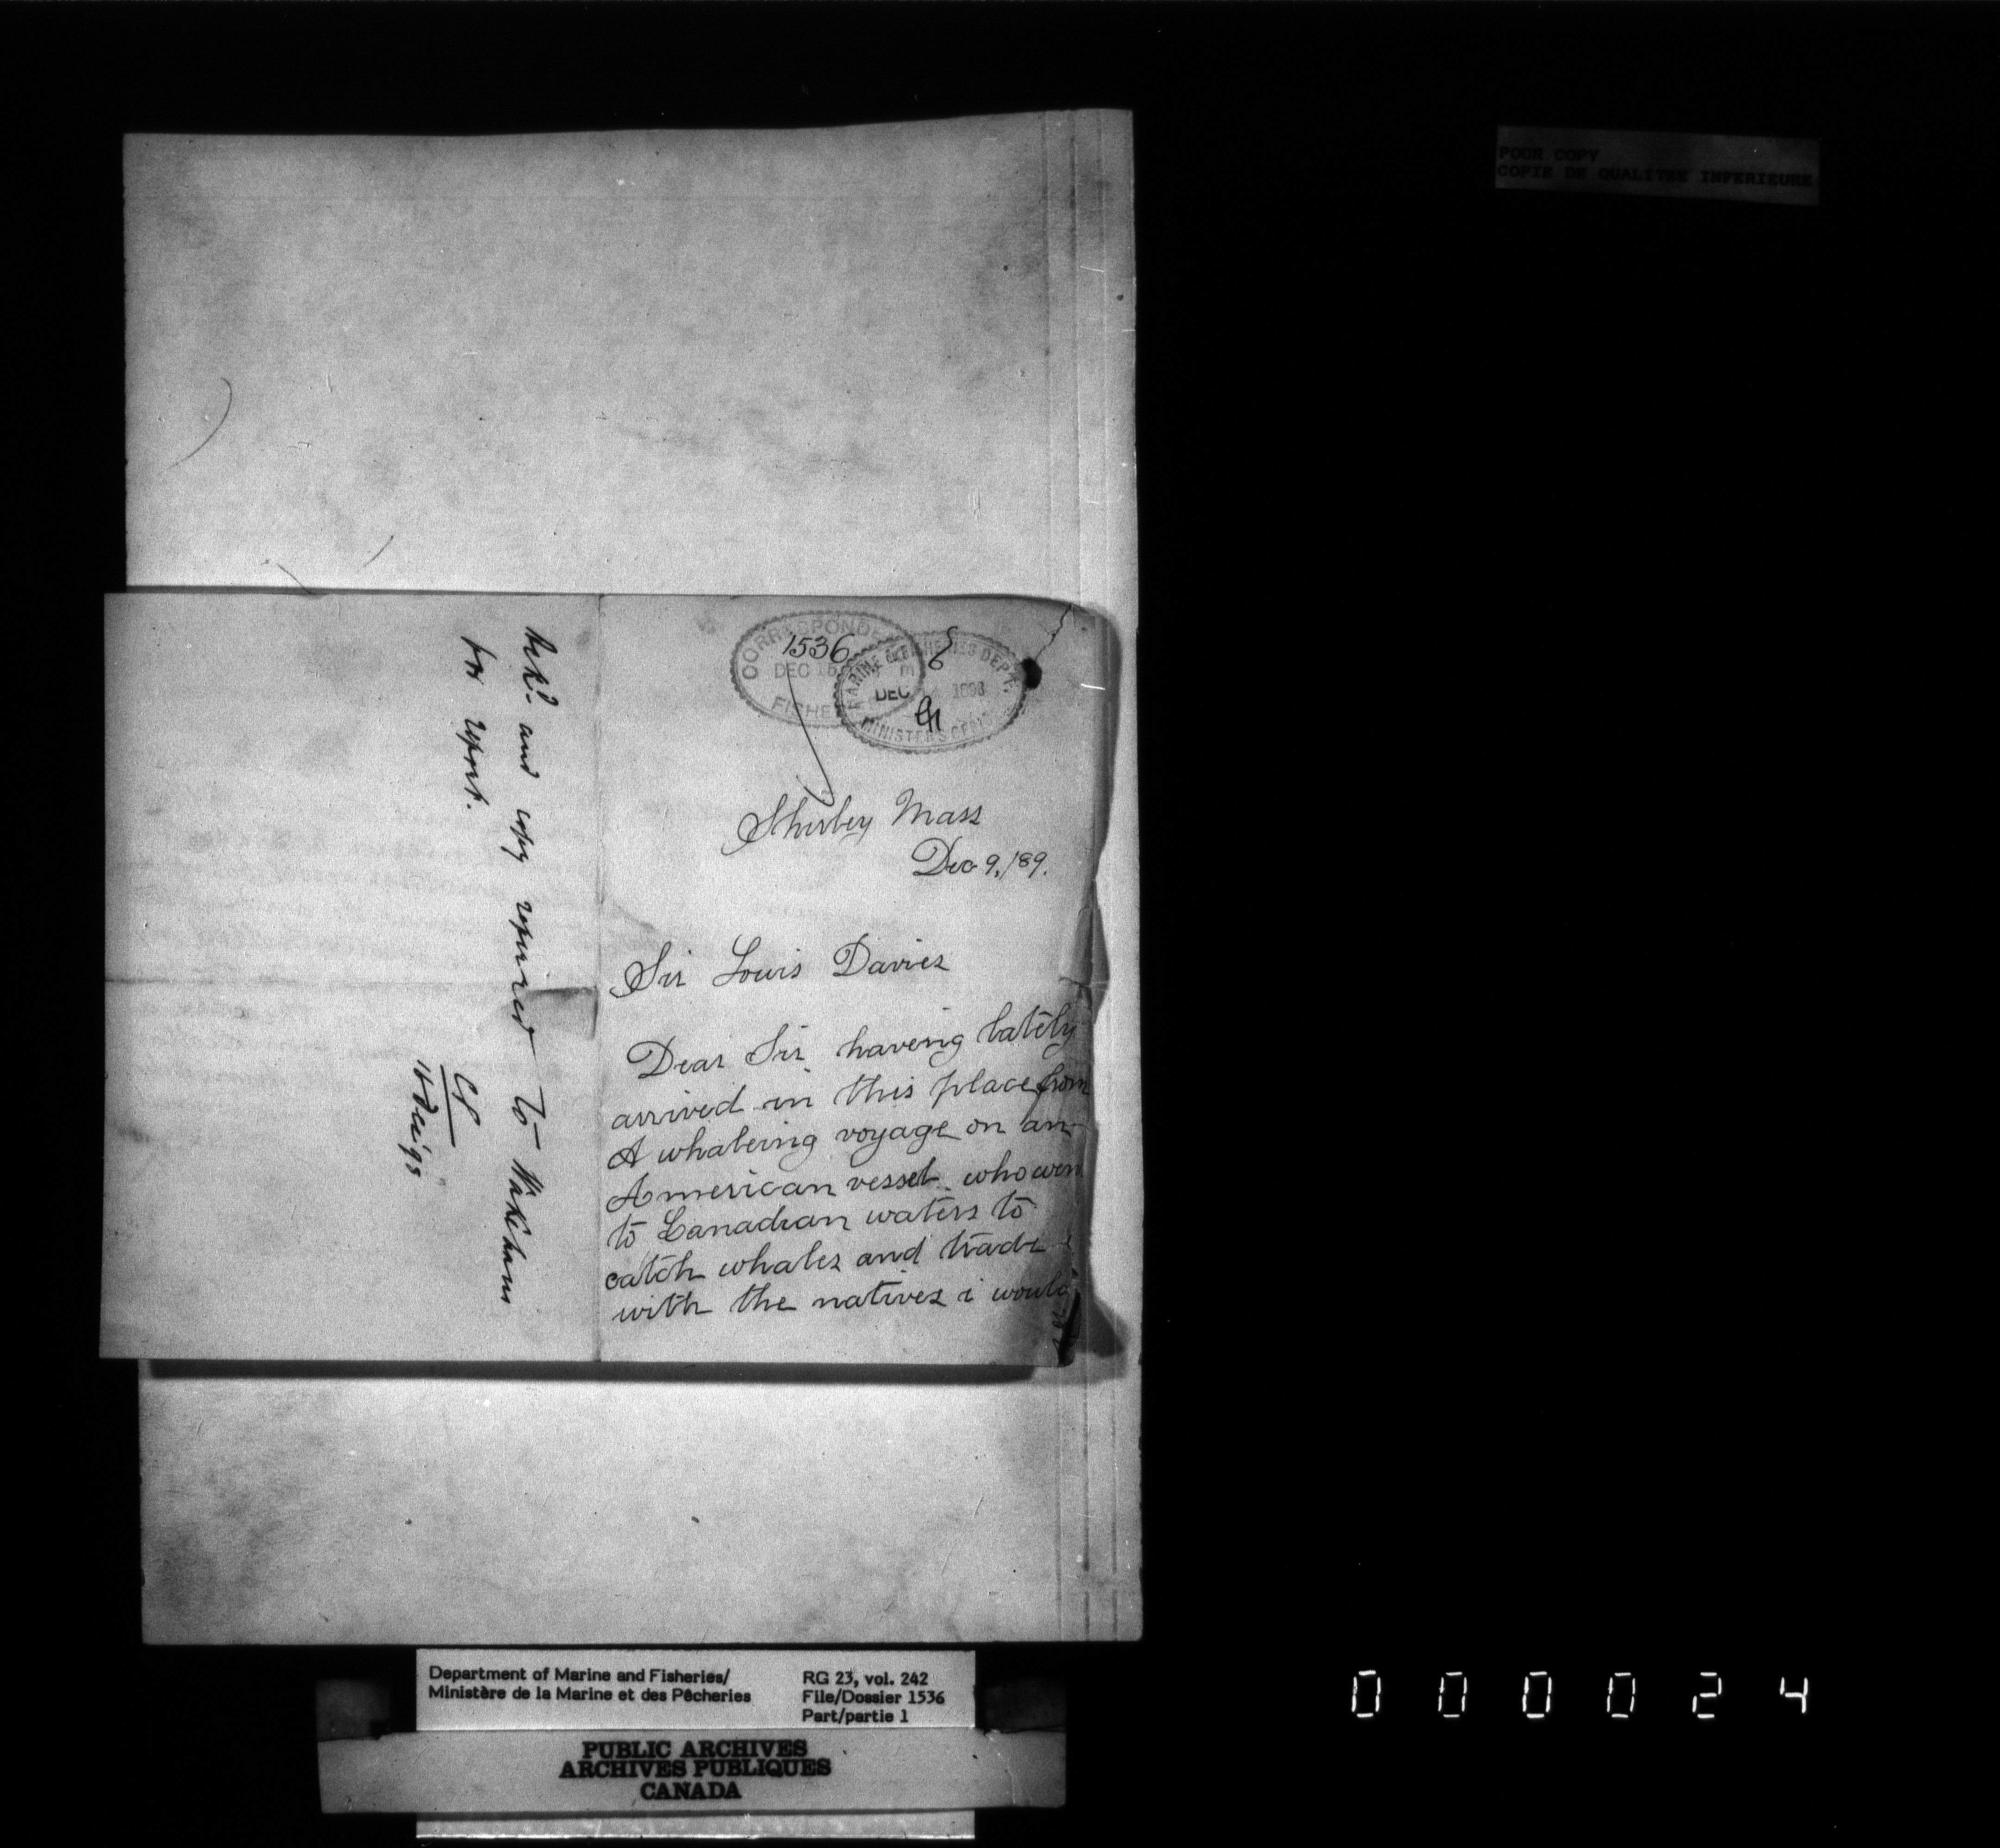 POOR COPY
COPIE DE QUALITEE INFERIEURE
CORRESPONDE
1536
DEC 15
FISHE
MARINE & FISHERIES DEPT.
6
DEC 1898
MINISTER'S OFFICE
Shirley Mass
Dec 9, /89.
Sir Louis Davies
Dear Sir having lately
arrived in this place from
A whaleing voyage on an
American vessel who went
to Canadian waters to
catch whales and trade
with the natives i would
Ack'd. and copy referred to Wakeham
for report.
16 Dec '98
Department of Marine and Fisheries/
Ministère de la Marine et des Pêcheries
RG 23, vol. 242
File/Dossier 1536
Part/partie 1
PUBLIC ARCHIVES
ARCHIVES PUBLIQUES
CANADA
000024